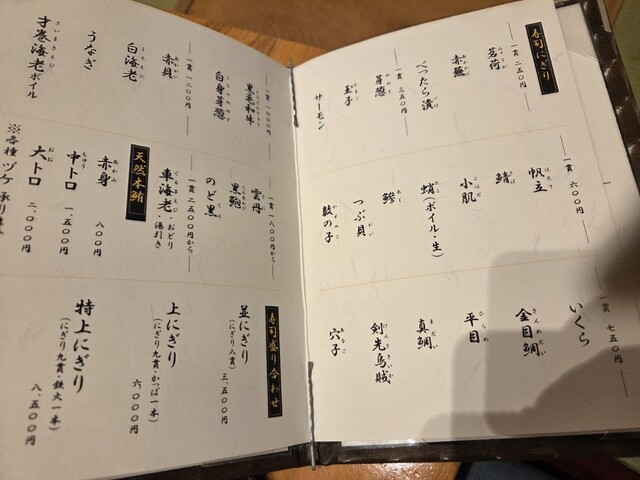 寿司にぎり
一貫 二五〇円
茗荷
赤蕪
べったら漬
一貫 三五〇円
芽葱
玉子
サーモン
一貫 六〇〇円
帆立
鯖
小肌
蛸(ボイル・生)
鯵
つぶ貝
数の子
一貫 七五〇円
いくら
金目鯛
平目
真鯛
剣先烏賊
穴子
一貫 一〇〇〇円
黒毛和牛
白身芽葱
一貫 一二〇〇円
赤貝
白海老
うなぎ
才巻海老ボイル
一貫 一八〇〇円から
雲丹
黒鮑
一貫 二五〇〇円から
のど黒
車海老・おどり・湯引き
天然本鮪
赤身 八〇〇円
中トロ 一、五〇〇円
大トロ 二、〇〇〇円
※各種 ヅケ 承り
寿司盛り合わせ
並にぎり
(にぎり八貫) 三、五〇〇円
上にぎり
(にぎり九貫・かっぱ一本) 六〇〇〇円
特上にぎり
(にぎり九貫・鉄火一本) 八、五〇〇円